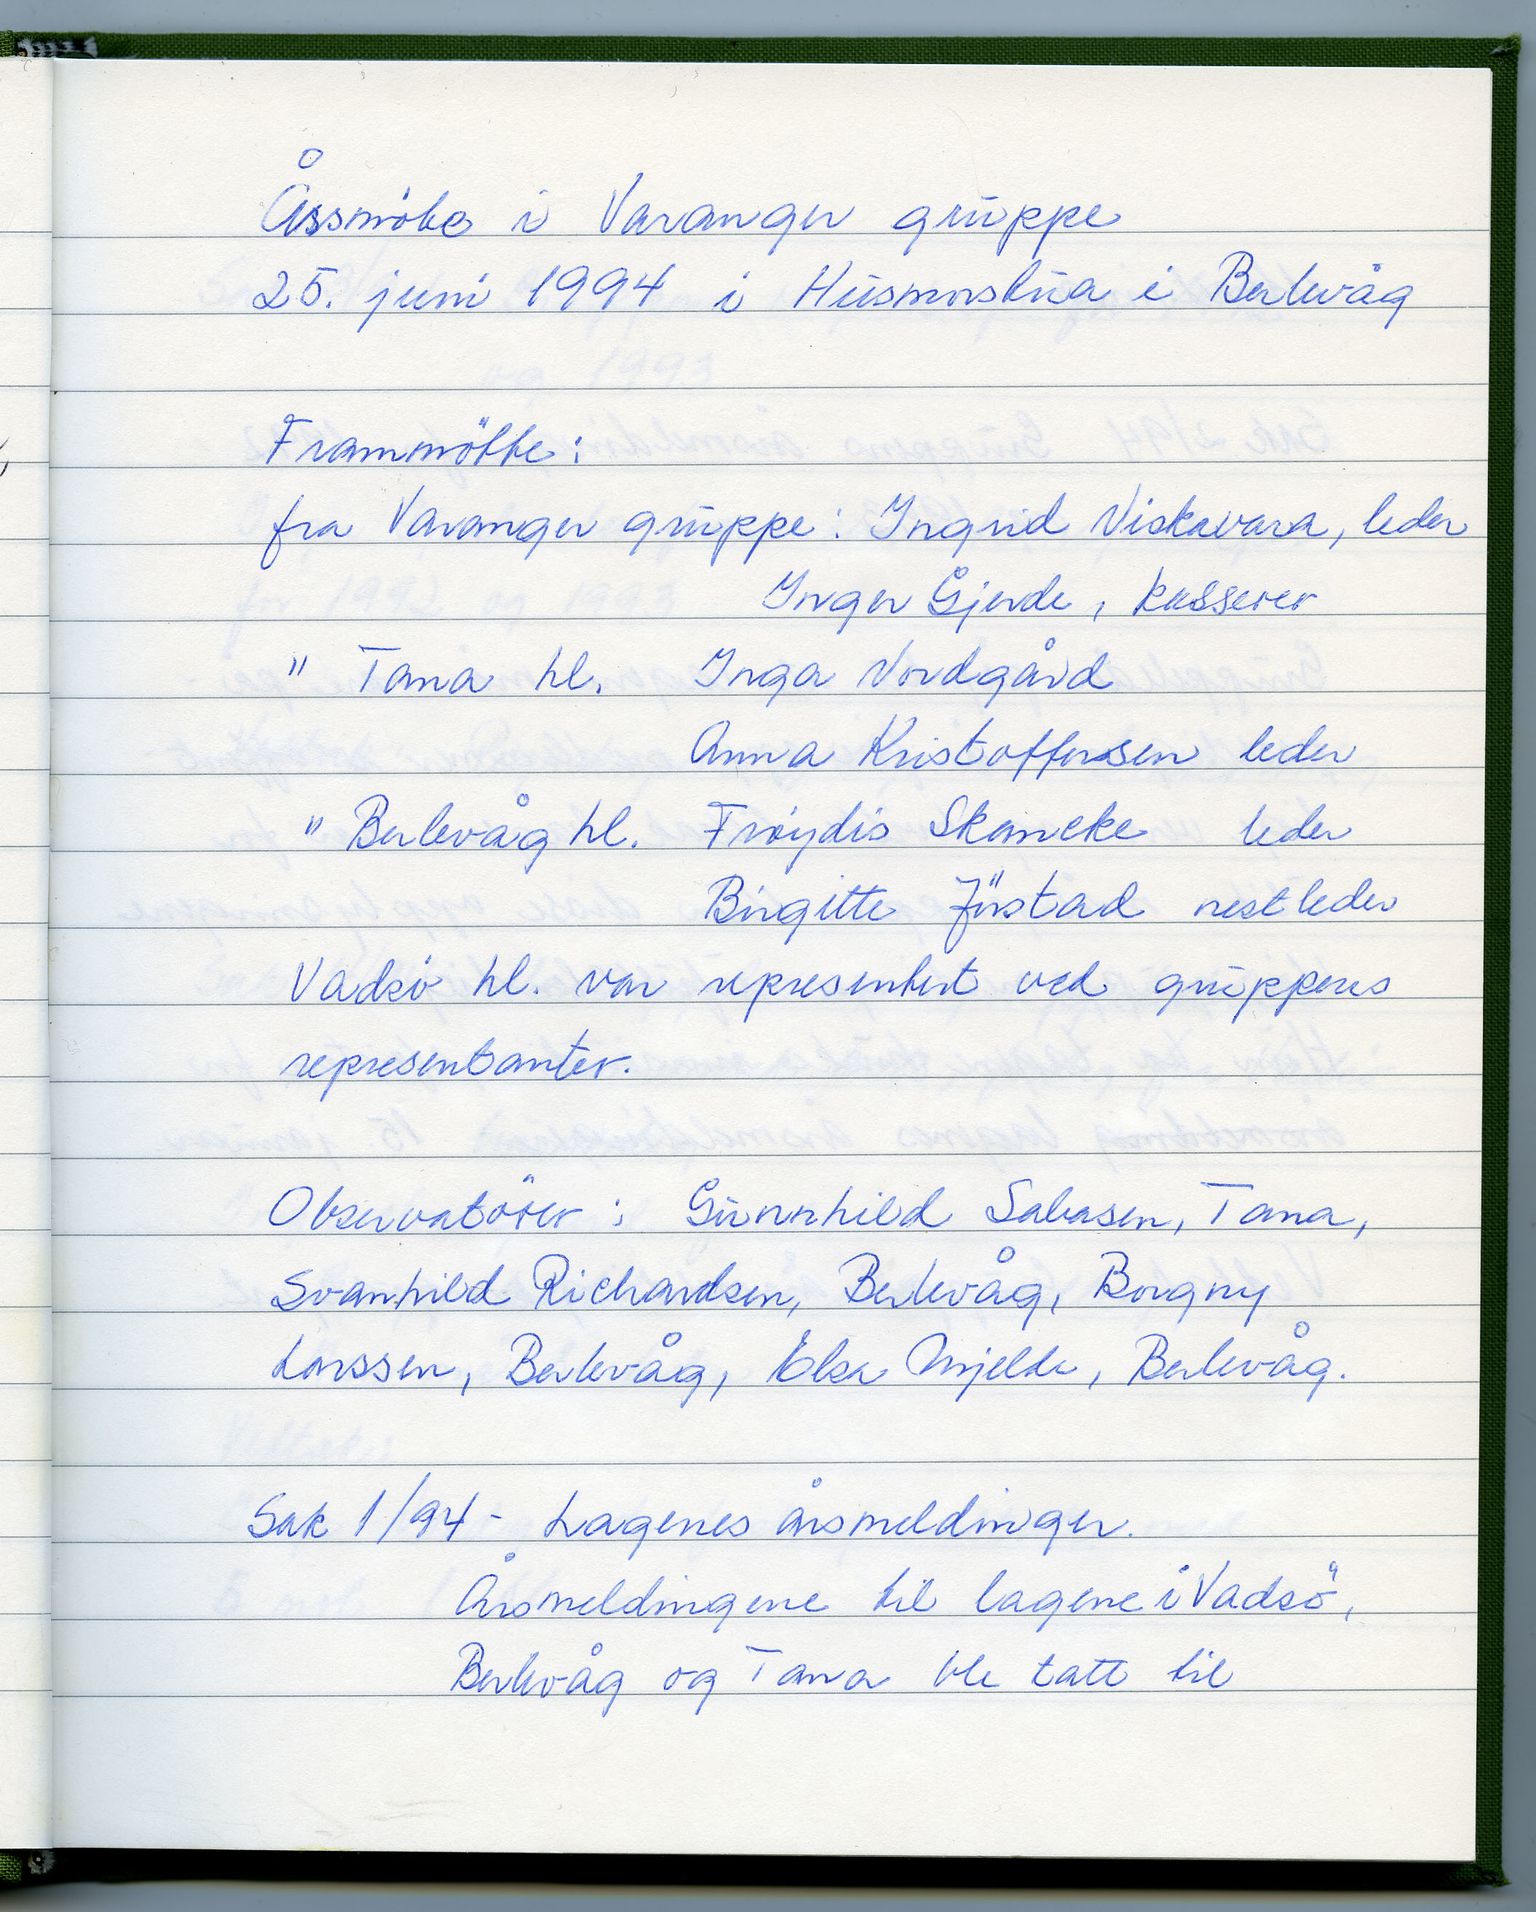 Årsmöte i Varanger gruppe
25. juni 1994 i Husmorstua i Berlevåg
Frammötte:
fra Varanger gruppe: Ingrid Niskavara, leder
Inger Gjerde, kasserer
" Tana hl. Inga Nordgård
Anna Kristoffersen leder
" Berlevåg hl. Frøydis Skancke leder
Birgitte Jörstad nestleder
Vadsö hl. var representert ved gruppens
representanter.
Observatörer: Gunnhild Sabasen, Tana,
Svanhild Richardsen, Berlevåg, Borgny
Larssen, Berlevåg, Elsa Mjelde, Berlevåg.
Sak 1/94 - Lagenes årsmeldinger.
Årsmeldingene til lagene i Vadsö,
Berlevåg og Tana ble tatt til